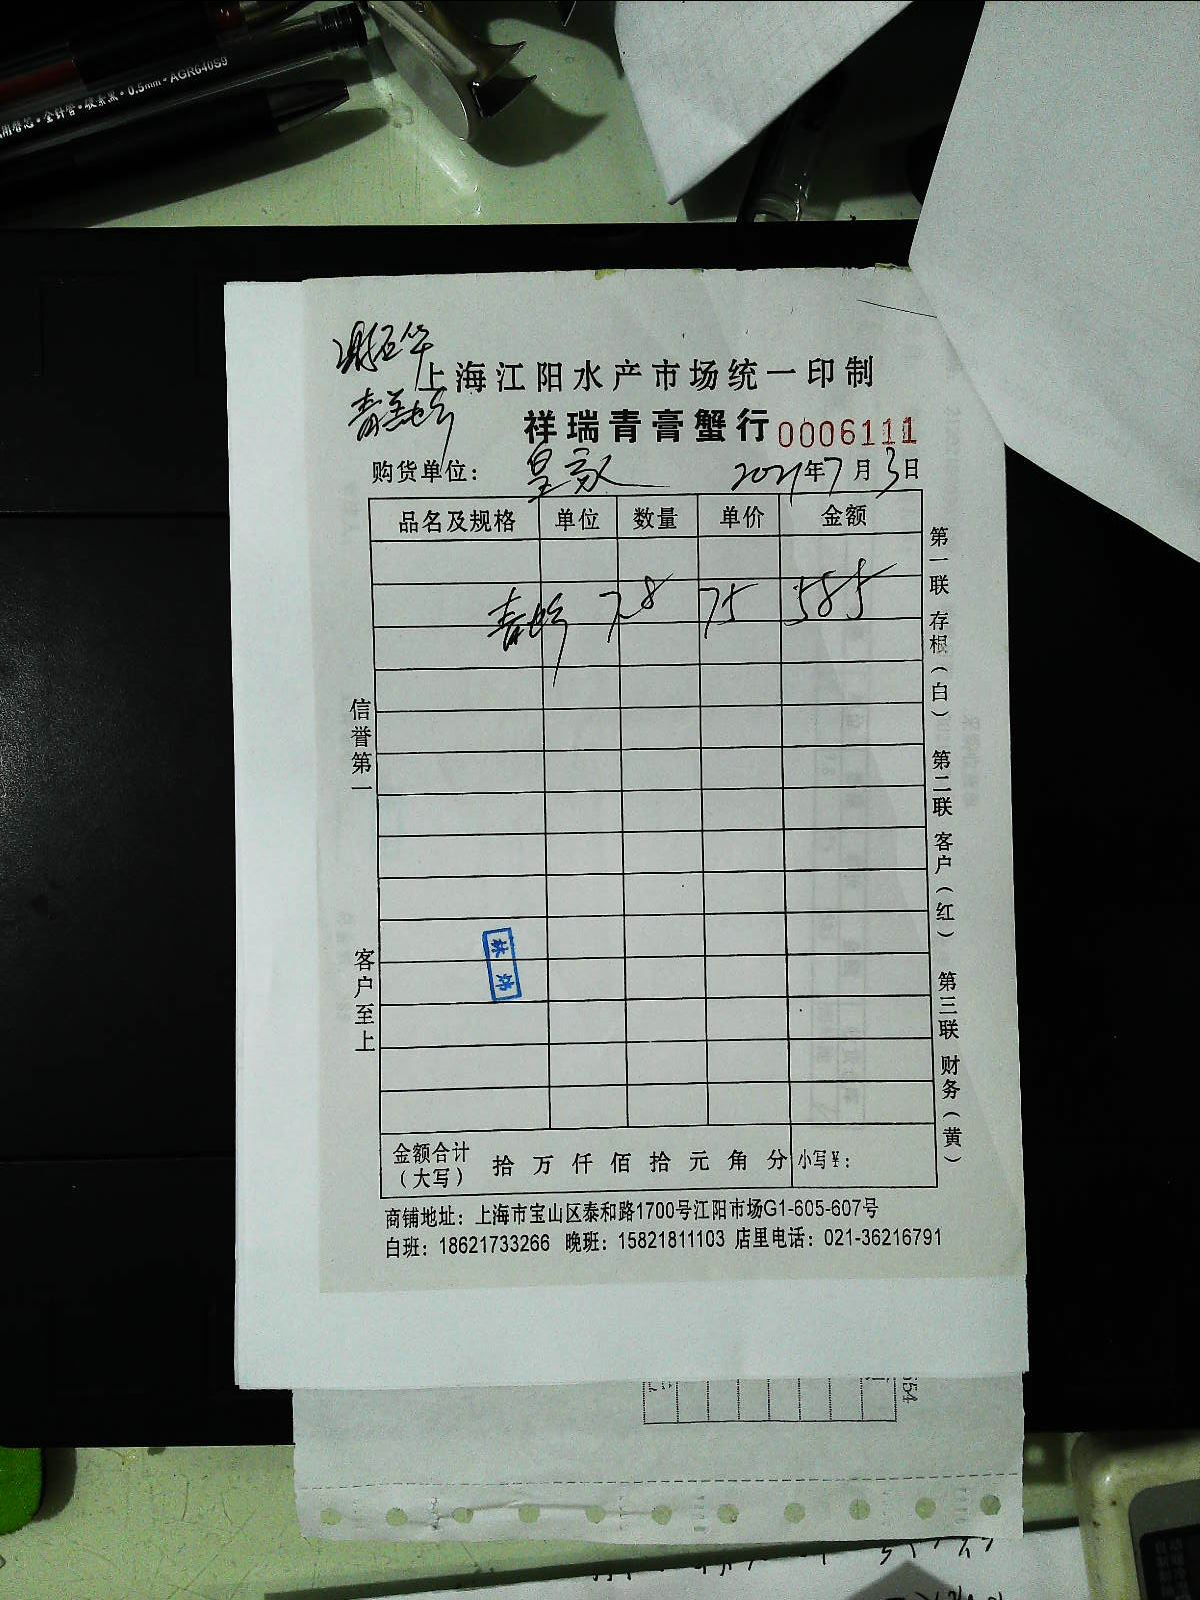 全针管·碳素黑·0.5mm·AGR640S9
上海江阳水产市场统一印制
祥瑞青膏蟹行 0006111
购货单位：皇家 2021年7月3日
品名及规格 单位 数量 单价 金额
7.8 75 585
信誉第一
客户至上
第一联 存根（白） 第二联 客户（红） 第三联 财务（黄）
金额合计（大写） 拾 万 仟 佰 拾 元 角 分 小写¥：
商铺地址：上海市宝山区泰和路1700号江阳市场G1-605-607号
白班：18621733266 晚班：15821811103 店里电话：021-36216791